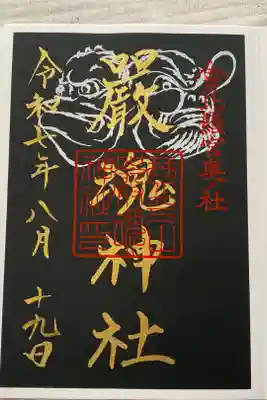 奥社
嚴魂神社
令和七年八月 十九日